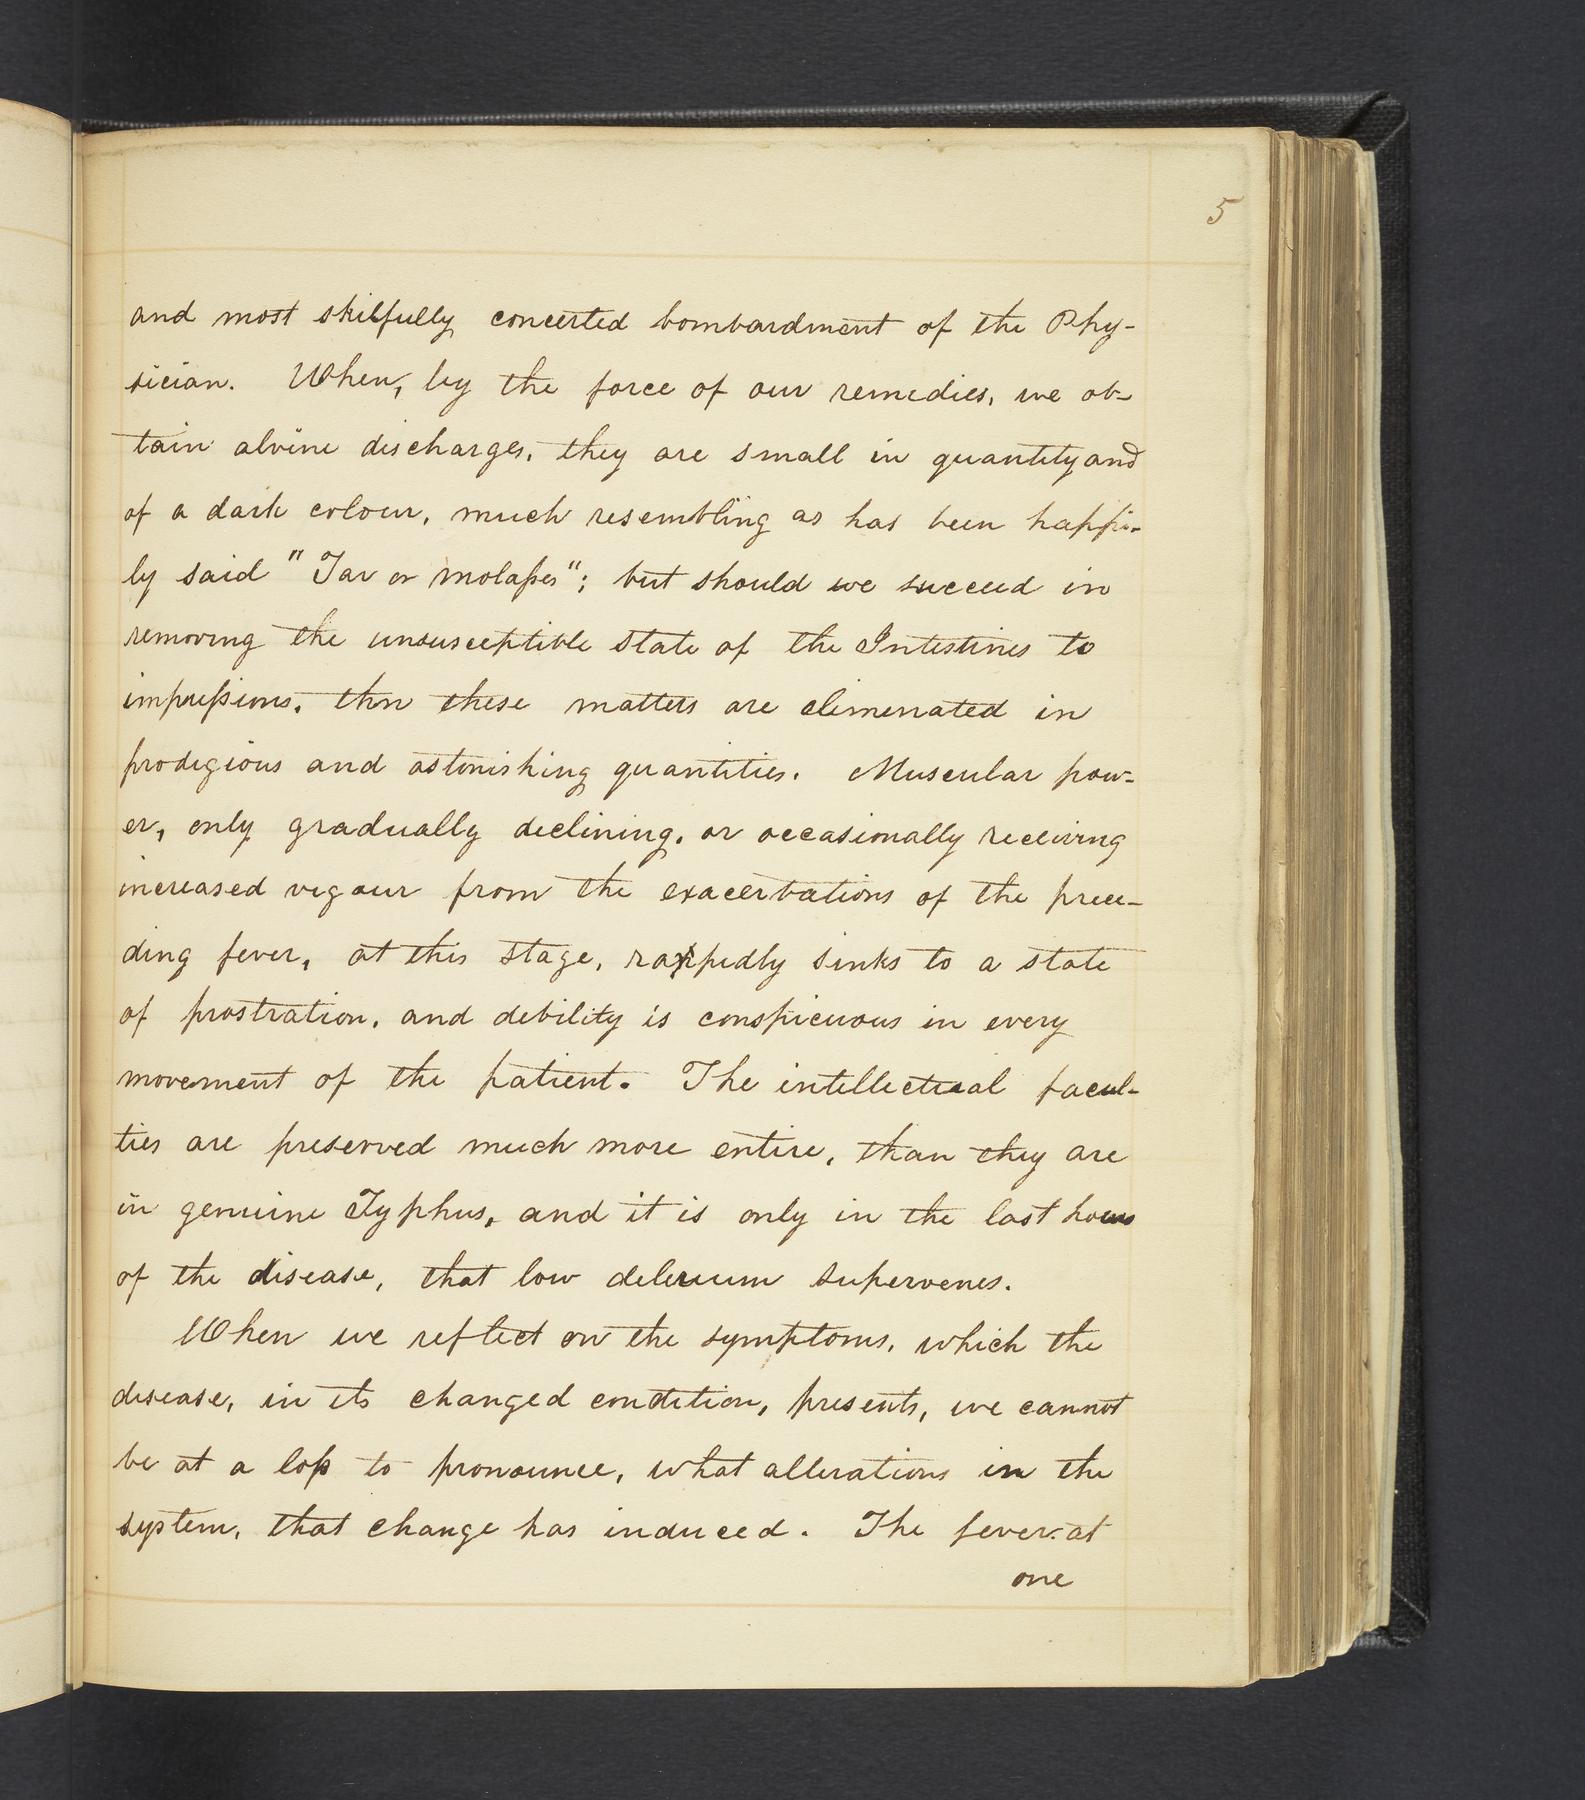 5
and most skilfully concerted bombardment of the Phy-
sician. When, by the force of our remedies, we ob-
tain alvine discharges, they are small in quantity and
of a dark colour, much resembling as has been happi-
ly said "Tar or molaſses"; but should we succeed in
removing the unsusceptible state of the Intestines to
impreſsions, then these matters are elimenated in
prodigious and astonishing quantities. Muscular pow-
er, only gradually declining, or occasionally receiving
increased vigour from the exacerbations of the prece-
ding fever, at this stage, rappedly sinks to a state
of prostration, and debility is conspicuous in every
movement of the patient. The intellectual facul-
ties are preserved much more entire, than they are
in genuine Typhus, and it is only in the last hours
of the disease, that low delerium supervenes.
When we reflect on the symptoms, which the
disease, in its changed condition, presents, we cannot
be at a loſs to pronounce, what allerations in the
system, that change has induced. The fever at
one